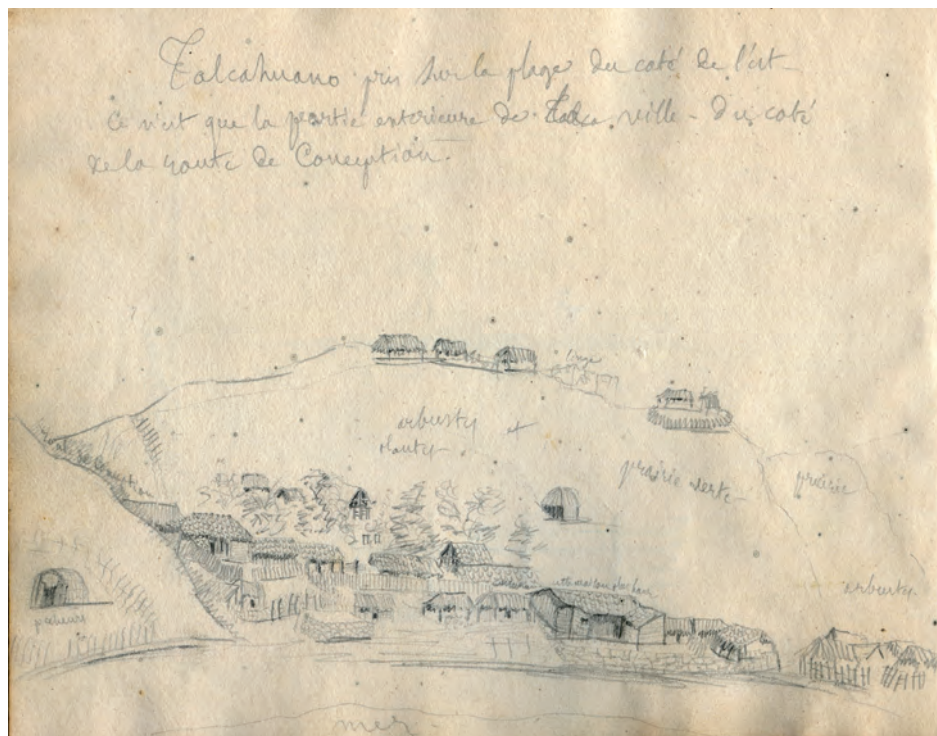 Talcahuano pris sur la plage du coté de l'est
Ce n'est que la partie exterieure de la ville - du coté
de la route de Conception.
arbustes et
plantes
prairie verte
prairie
route de Conception
arbustes
mer